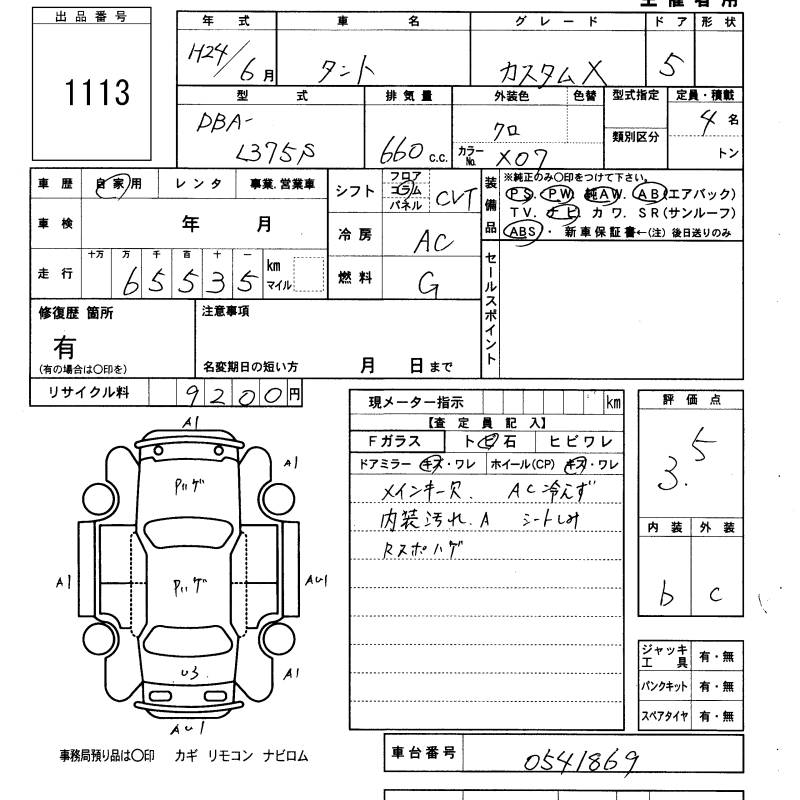 出品番号
1113
年式 車名 グレード ドア 形状
H24/6月 タント カスタムX 5
型式 排気量 外装色 色替 型式指定 定員・積載
DBA-L375S 660c.c. クロ カラーNo. X07 類別区分 4名 トン
車歴 自家用 レンタ 事業.営業車
車検 年 月
走行 十万 万 千 百 十 一
65535 km マイル
シフト フロア コラム パネル CVT
冷房 AC
燃料 G
装備品 ※純正のみ○印をつけて下さい。
PS. PW 純AW. AB(エアバック)
TV. ナビ. カワ. SR(サンルーフ)
ABS・ 新車保証書←(注) 後日送りのみ
セールスポイント
修復歴 箇所
有
(有の場合は○印を)
注意事項
名変期日の短い方 月 日まで
リサイクル料 9200円
現メーター指示 km
【査定員記入】
Fガラス トビ石 ヒビワレ
ドアミラー キズ・ワレ ホイール(CP) キズ・ワレ
メインキー欠. AC冷えず
内装汚れ.A シートしみ
Rスポハゲ
評価点
3.5
内装 外装
b c
A1
A1
P.ハゲ
A1 P.ハゲ AU1
U3 A1
AU1
ジャッキ工具 有・無
パンクキット 有・無
スペアタイヤ 有・無
事務局預り品は○印 カギ リモコン ナビロム
車台番号 0541869